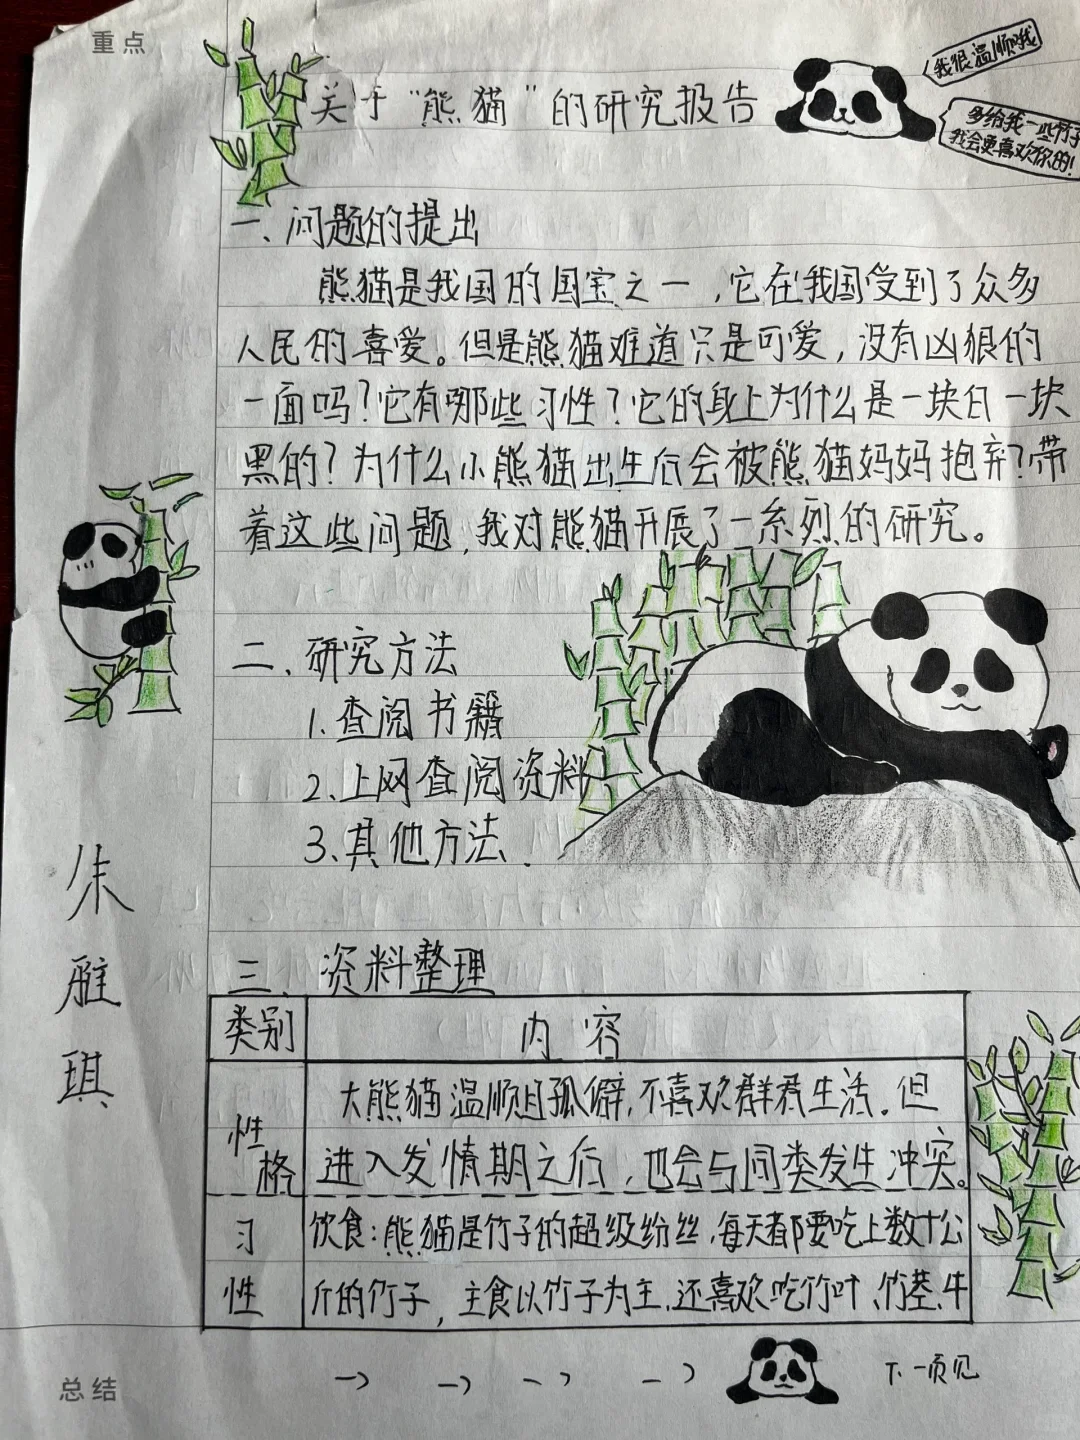 重点
关于“熊猫”的研究报告
我很温顺哦
多给我一些竹子
我会更喜欢你的!
一、问题的提出
熊猫是我国的国宝之一,它在我国受到了众多
人民的喜爱。但是熊猫难道只是可爱,没有凶狠的
一面吗?它有哪些习性?它的身上为什么是一块白一块
黑的?为什么小熊猫出生后会被熊猫妈妈抱弃?带
着这些问题,我对熊猫开展了一系列的研究。
二、研究方法
1.查阅书籍
2.上网查阅资料
3.其他方法.
朱雅琪
三、资料整理
类别
内容
性格
大熊猫温顺且孤僻,不喜欢群居生活。但
进入发情期之后,也会与同类发生冲突。
习性
饮食:熊猫是竹子的超级粉丝,每天都要吃上数十公
斤的竹子,主食以竹子为主,还喜欢吃竹叶、竹茎、牛
下一页见
总结